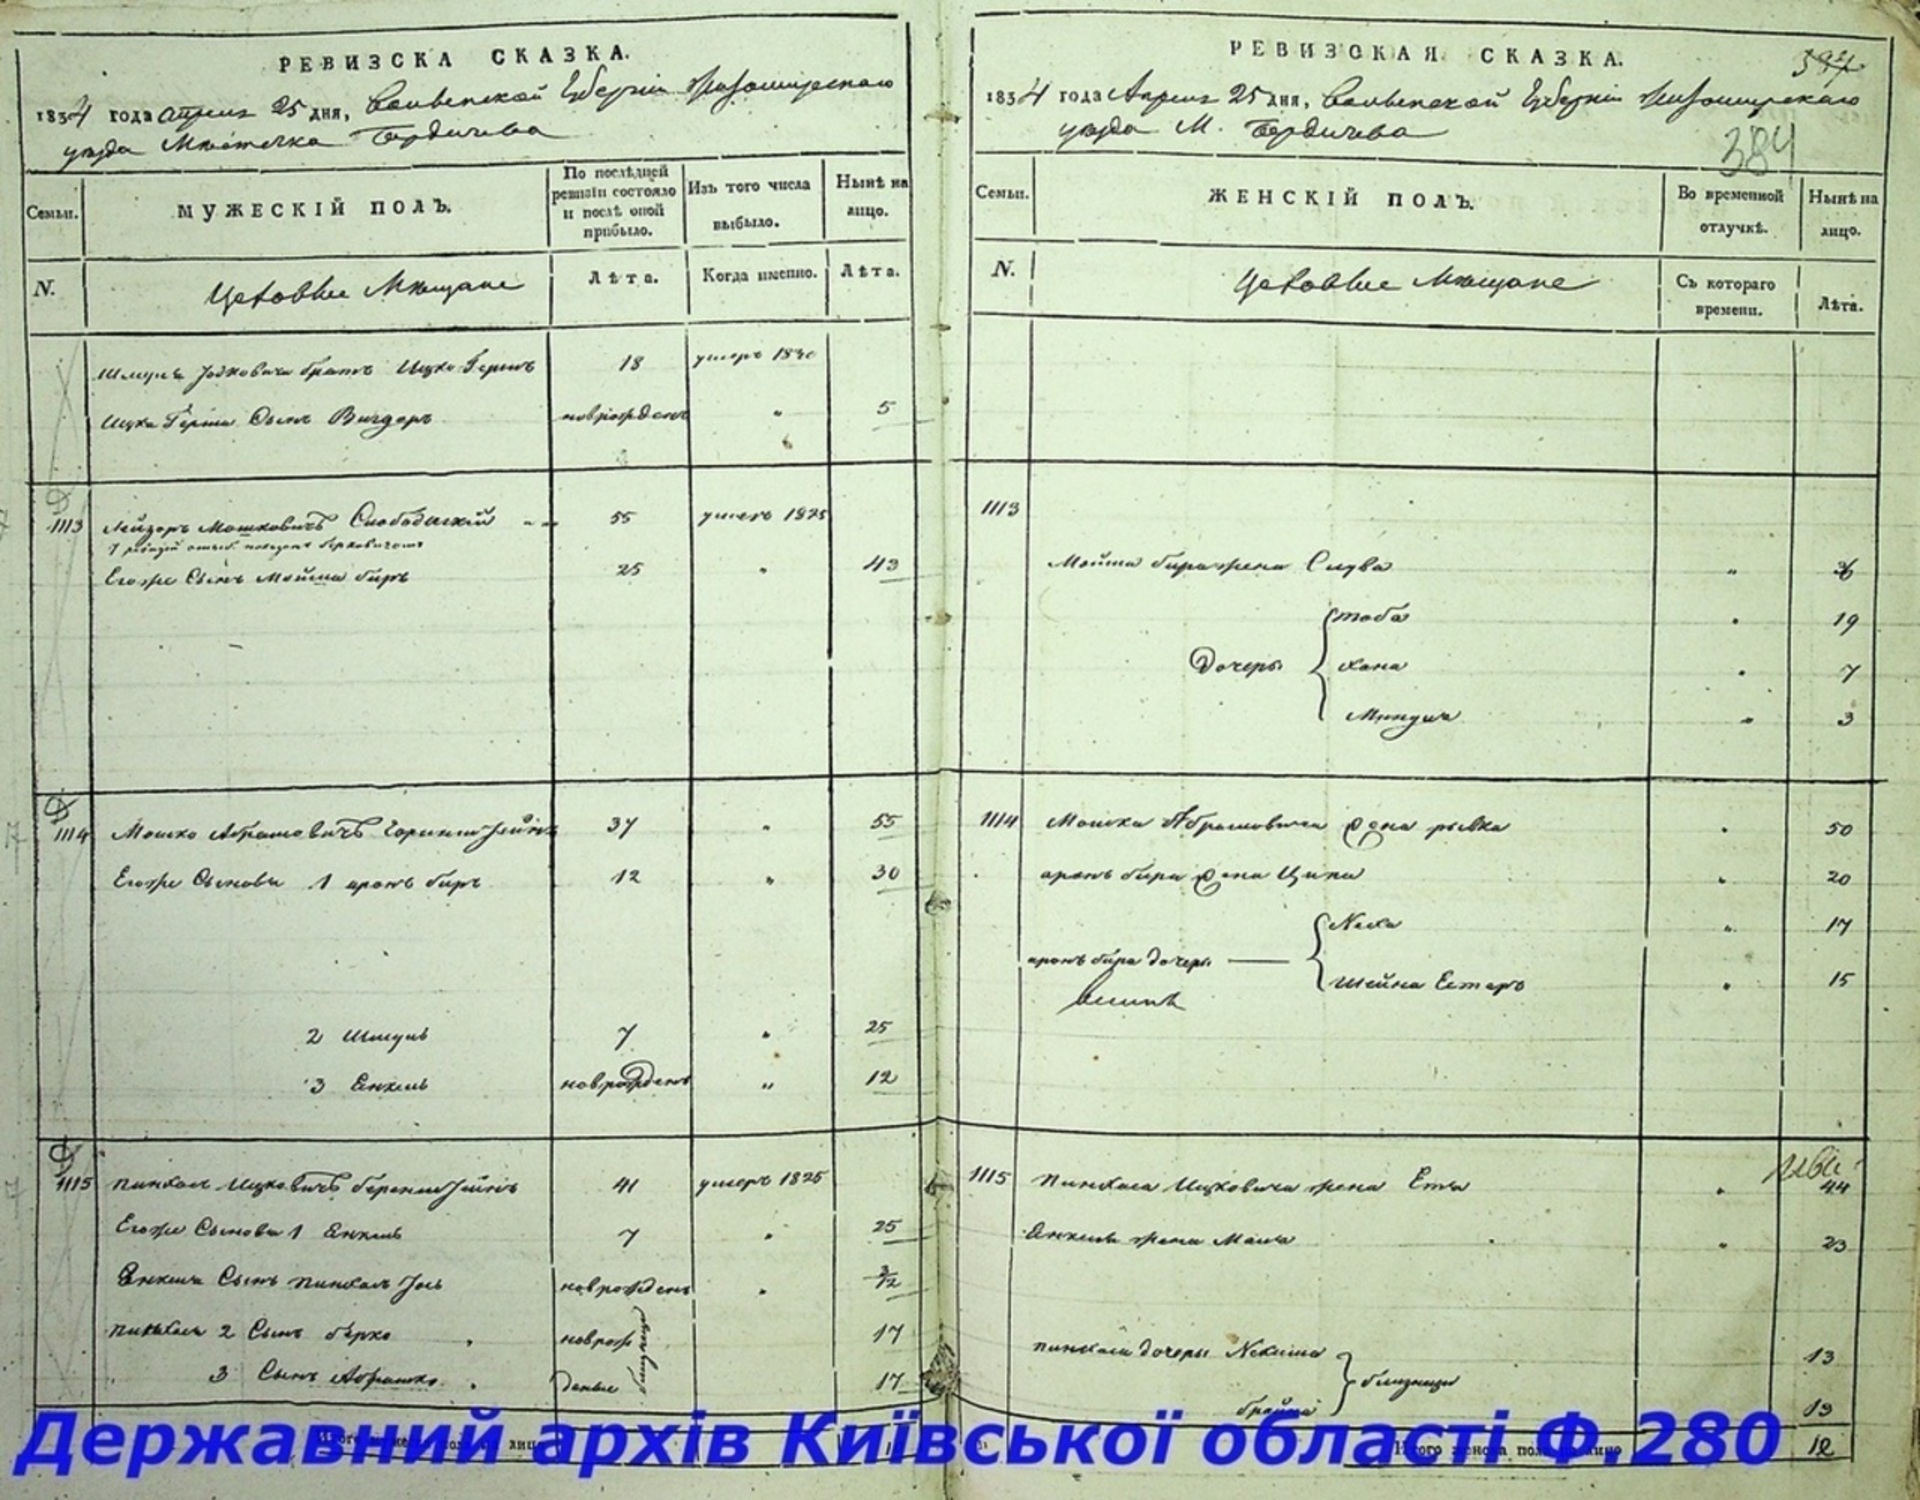 РЕВИЗСКА СКАЗКА.
1834 года апреля 25 дня, Волынской Губернии Житомирскаго
уезда Местечка Бердичева
Семьи.
МУЖЕСКІЙ ПОЛЪ.
По послѣдней ревизіи состояло и послѣ оной прибыло.
Изъ того числа выбыло.
Нынѣ на лицо.
N.
Цеховые Мещане
Лѣта.
Когда именно.
Лѣта.
Шмуля Іосковича братъ Ицко Гершъ 18 умеръ 1830
Ицка Герша Сынъ Вигдоръ новорожденъ " 5
1113 Лейзоръ Мошковичъ Слободискій 55 умеръ 1825
Егоже Сынъ Мойша биръ 25 " 43
1114 Мошко Абрамовичъ 37 " 55
Егоже Сыновья 1 аронъ биръ 12 " 30
2 Шмуль 7 " 25
3 Янкель новорожденъ " 12
1115 Пинхасъ Ицковичъ 41 умеръ 1825
Егоже Сыновья 1 Янкель 7 " 25
Янкеля Сынъ Пинхасъ Іось новорожденъ " 3/12
Пинхаса 2 Сынъ берко новорож 17
3 Сынъ Абрашко денные близнецы 17
РЕВИЗСКАЯ СКАЗКА.
384
1834 года Апреля 25 дня, Волынской Губернии Житомирскаго
уезда М. Бердичева
Семьи.
ЖЕНСКІЙ ПОЛЪ.
Во временной отлучкѣ.
Нынѣ на лицо.
N.
Цеховые Мещане
Съ котораго времени.
Лѣта.
1113
Мойша бира жена Слува " 36
Дочеры
тоба " 19
хана " 7
Миндля " 3
1114 Мошка Абрамовича жена рывка " 50
аронъ бира жена Ципа " 20
аронъ бира дочеры
Неха " 17
Шейна Естеръ " 15
1115 Пинхаса Ицковича жена Етя " 44
Янкеля жена Маля " 23
пинхаса дочеры Нехама 13
близнецы
брайна 13
Итого женска пола на лицо 12
Державний архів Київської області Ф.280